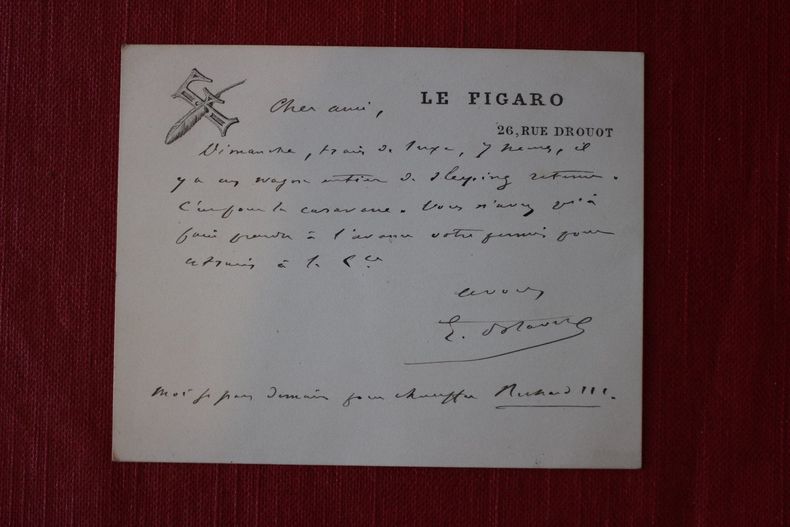 LE FIGARO
26, RUE DROUOT
Cher ami,
Dimanche, train de luxe, 7 heures, il
y a un wagon entier de sleeping retenu.
C'est pour la caravane. Vous n'avez qu'à
faire prendre à l'avance votre permis pour
ce train à la Cie
à vous
E.
Moi je pars demain pour chauffer Richard III.